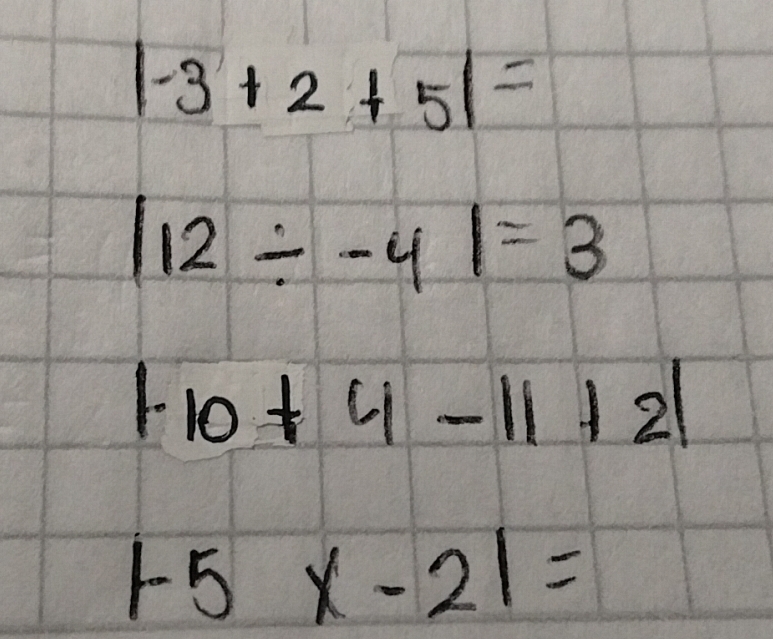 |-3 + 2 + 5| =
|12 ÷ -4| = 3
|-10 + 4 - 11 + 2|
|-5 x -2| =